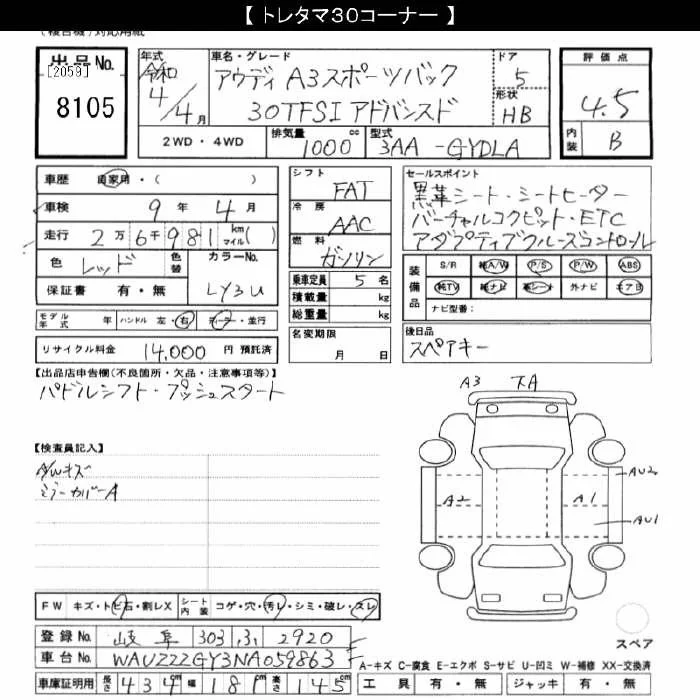 【 トレタマ30コーナー 】
(複合機)対応用紙
出品No. [2059] 8105
年式 令和 4/4月
車名・グレード アウディ A3スポーツバック
30TFSI アドバンスド
ドア 5
形状 HB
評価点 4.5
内装 B
2WD・4WD 排気量 1000 cc 型式 3AA-GYDLA
車歴 自家用・( )
車検 9年 4月
走行 2万6千981 km マイル( )
色 レッド 色替 カラーNo. LY3U
保証書 有・無
モデル年式 年 ハンドル 左・右 ディーラー・並行
リサイクル料金 14,000円 預託済
シフト FAT
冷房 AAC
燃料 ガソリン
乗車定員 5名
積載量 kg
総重量 kg
名変期限 月 日
セールスポイント
黒革シート・シートヒーター
バーチャルコクピット・ETC
アダプティブクルーズコントロール
装備品 S/R 純A/W P/S P/W ABS
純TV 純ナビ 革シート 外ナビ エアB
ナビ型番:
後日品
スペアキー
【出品店申告欄(不良箇所・欠品・注意事項等)】
パドルシフト・プッシュスタート
【検査員記入】
A/Wキズ
ミラーカバーA
A3 下A
AU2
A2 A1
AU1
スペア
FW キズ・トビ石・割レX シート内装 コゲ・穴・汚レ・シミ・破レ・スレ
登録No. 岐阜 303 ふ 2920
車台No. WAUZZZGY3NA059863
車庫証明用 長さ 434 幅 181 高さ 145 cm
A-キズ C-腐食 E-エクボ S-サビ U-凹ミ W-補修 XX-交換済
工具 有・無 ジャッキ 有・無